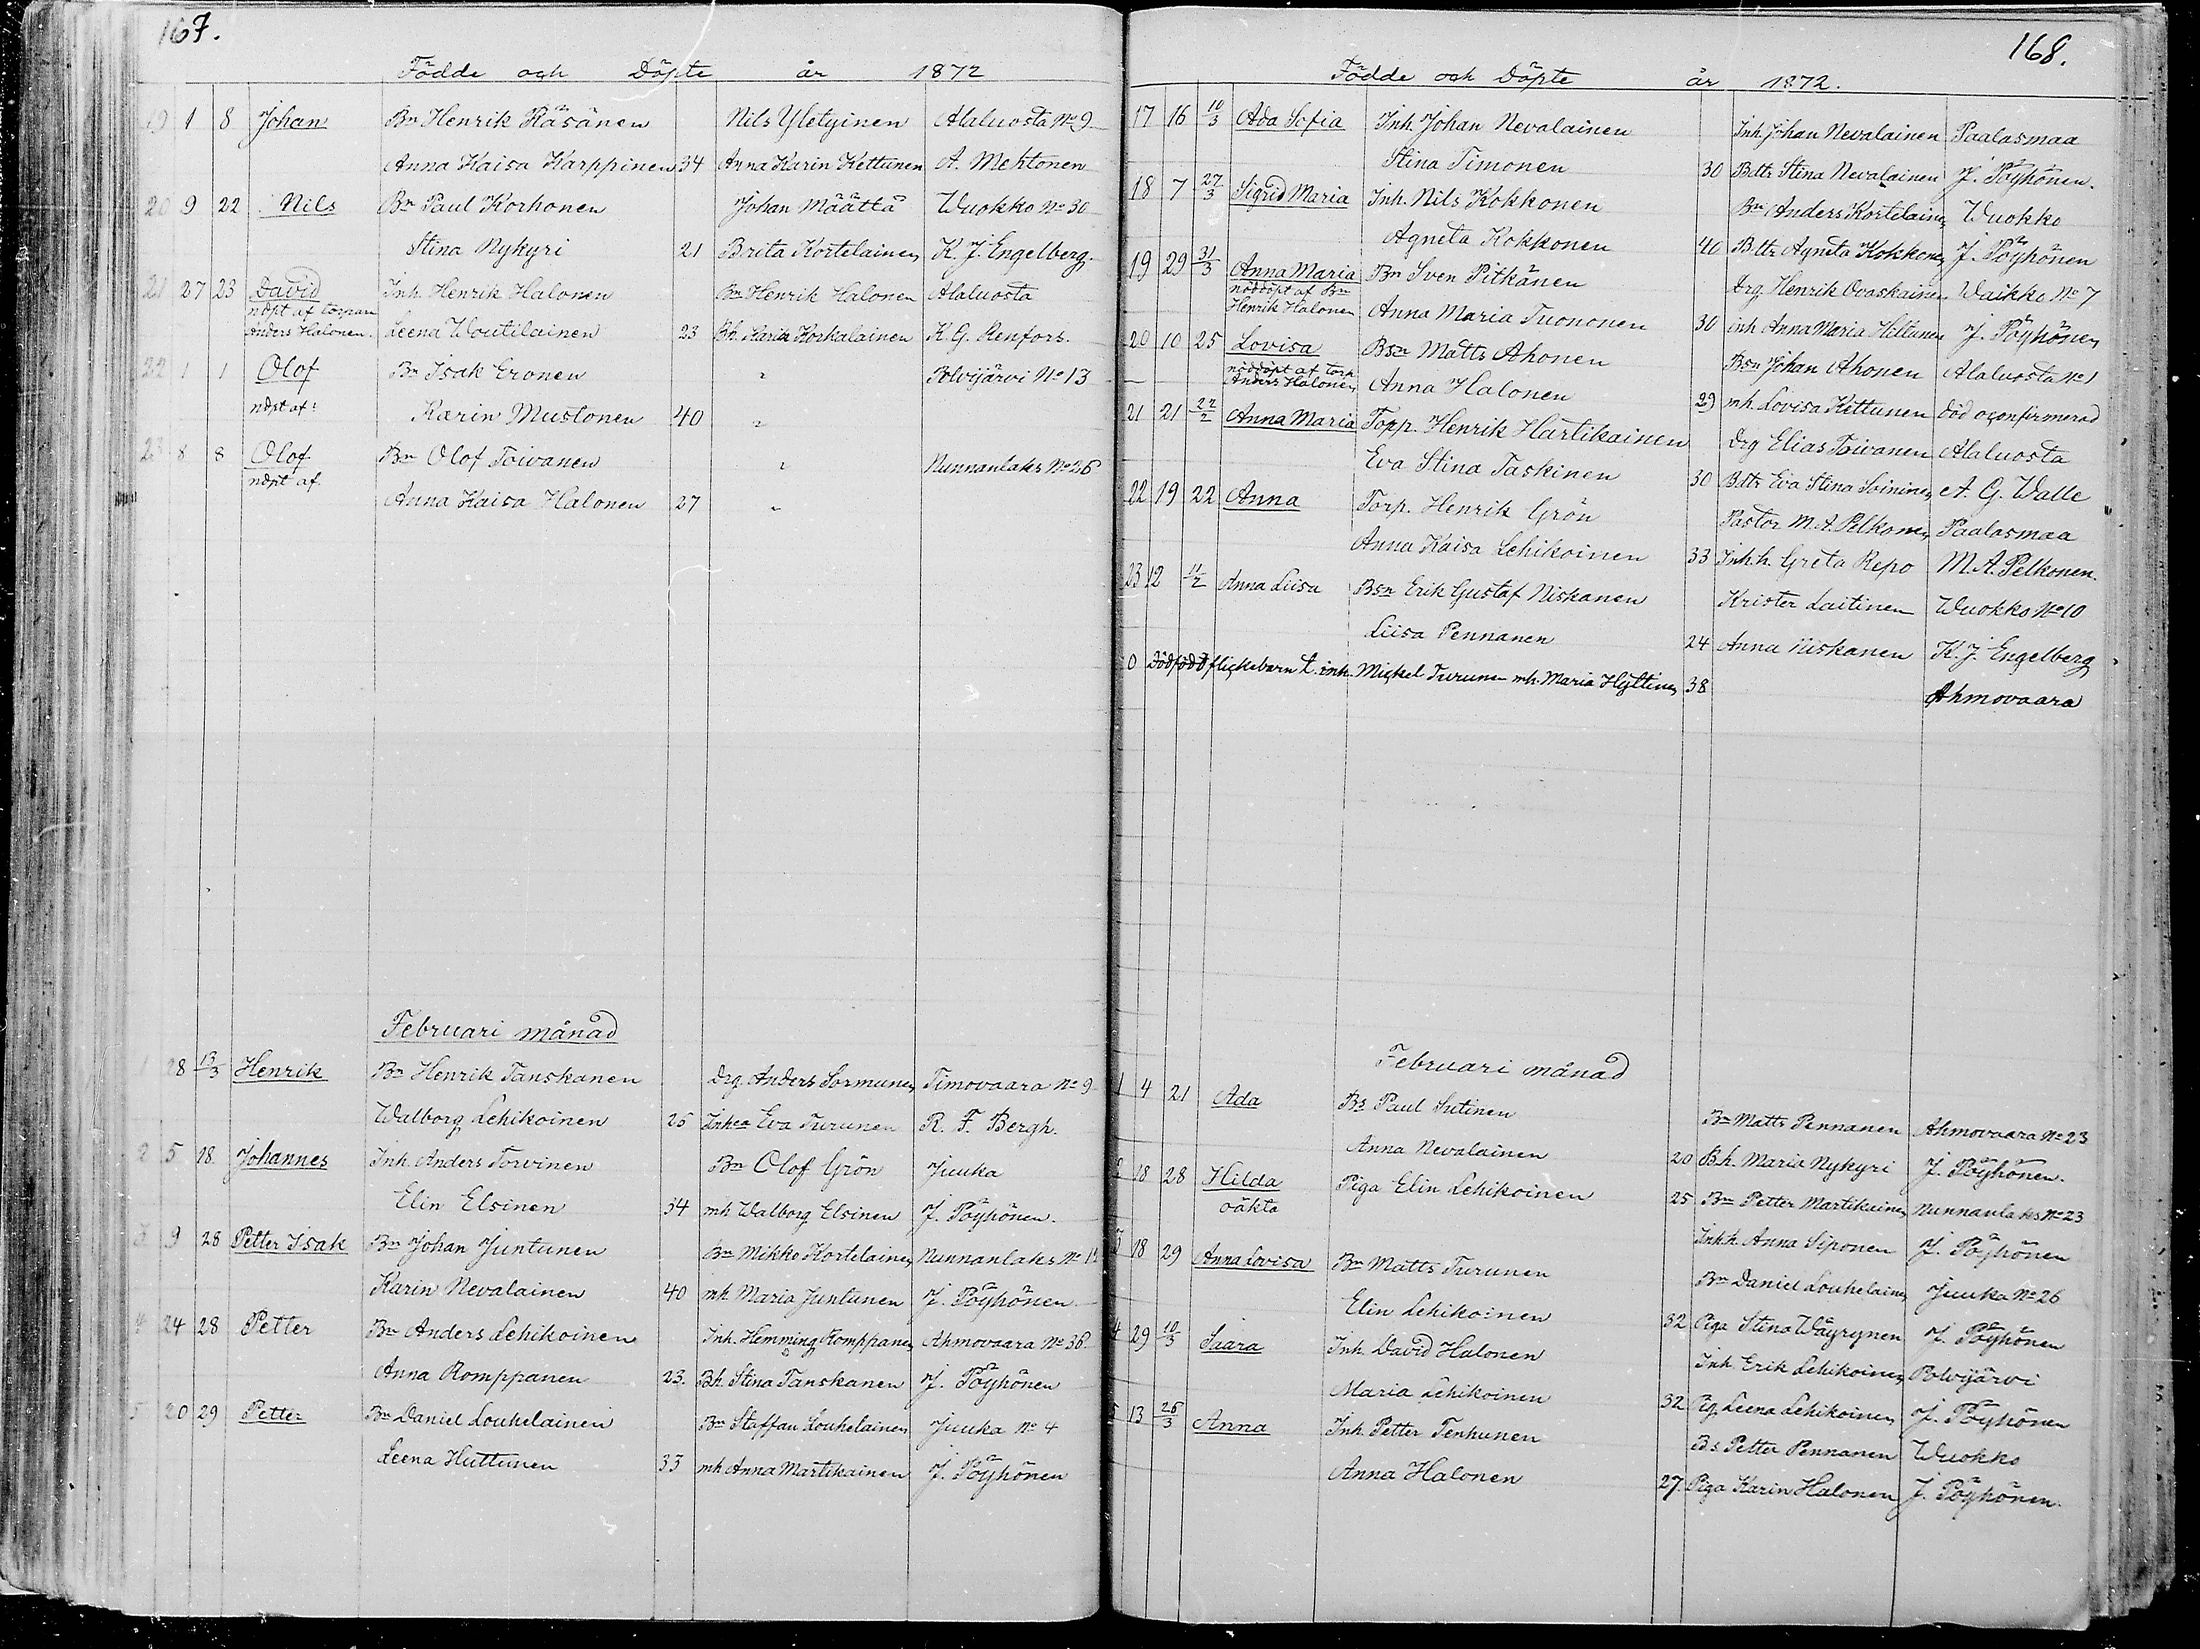 167.
Födde och Döpte år 1872
19 1 8 Johan Bn Henrik Räsänen Nils Yletyinen Alaluosta No 9
Anna Kaisa Karppinen 34 Anna Karin Kettunen A. Mehtonen
20 9 22 Nils Bn Paul Korhonen Johan Määttä Wuokko No 30
Stina Nykyri 21 Brita Kortelainen K. J. Engelberg.
21 27 23 David Inh. Henrik Halonen Bn Henrik Halonen Alaluosta
ndpt af torparn
Anders Halonen. Leena Woutilainen 23 Bh. Karin Korkalainen K. G. Renfors.
22 1 1 Olof Bn Isak Eronen " Polvijärvi No 13
ndpt af: Karin Mustonen 40 "
23 8 8 Olof Bn Olof Toivanen " Nunnanlaks No 26
ndpt af.
Anna Kaisa Halonen 27 "
Februari månad
1 28 13/3 Henrik Bn Henrik Tanskanen Drg Anders Sormunen Timovaara No 9
Walborg Lehikoinen 25 Inhea Eva Turunen R. F. Bergh.
2 5 18. Johannes Inh. Anders Torvinen Bn Olof Grön Juuka
Elin Elsinen 34 mh Walborg Elsinen J. Pöyhönen.
3 9 28 Petter Isak Bn Johan Juntunen Bn Mikko Kortelainen Nunnanlaks No
Karin Nevalainen 40 mh. Maria Juntunen J. Pöyhönen
4 24 28 Petter Bn Anders Lehikoinen Inh. Hemming Romppanen Ahmovaara No 36.
Anna Romppanen 23. Bh. Stina Tanskanen J. Pöyhönen
5 20 29 Petter Bn Daniel Louhelainen Bn Staffan Louhelainen Juuka No 4
Leena Huttunen 33 mh Anna Martikainen J. Pöyhönen
168.
Födde och Döpte år 1872.
17 16 10/3 Ada Sofia Inh. Johan Nevalainen Inh. Johan Nevalainen Paalasmaa
Stina Timonen 30 Bdttr Stina Nevalainen J. Pöyhönen.
18 7 27/3 Sigrid Maria Inh. Nils Kokkonen Bn Anders Kortelainen Wuokko
Agneta Kokkonen 40 Bdttr Agneta Kokkonen J. Pöyhönen
19 29 31/3 Anna Maria Bn Sven Pitkänen Drg. Henrik Ovaskainen Waikko No 7
nöddöpt af Bn
Henrik Halonen Anna Maria Tuononen 30 inh. Anna Maria Hiltunen J. Pöyhönen
20 10 25 Lovisa Bsn Matts Ahonen Bsn Johan Ahonen Alaluosta No 1
nöddöpt af torp.
Anders Halonen Anna Halonen 29 mh. Lovisa Kettunen död oconfirmerad
21 21 22/2 Anna Maria Torp. Henrik Hartikainen Drg Elias Toivanen Alaluosta
Eva Stina Taskinen 30 Bdtr Eva Stina Soininen A. G. Walle
22 19 22 Anna Torp. Henrik Grön Pastor M. A. Pelkonen Paalasmaa
Anna Kaisa Lehikoinen 33 Inh.h. Greta Repo M. A. Pelkonen.
23 12 11/2 Anna Liisa Bsn Erik Gustaf Niskanen Krister Laitinen Wuokko No 10
Liisa Pennanen 24 Anna Niskanen K. J. Engelberg
0 Dödfödd flickebarn t. inh. Mickel Turunen mh. Maria Hyttinen 38
Ahmovaara
Februari månad
1 4 21 Ada Bs Paul Sutinen Bn Matts Pennanen Ahmovaara No 23
Anna Nevalainen 20 Bh. Maria Nykyri J. Pöyhönen.
2 18 28 Hilda Piga Elin Lehikoinen 25 Bn Petter Martikainen Nunnanlaks No 23
oäkta Inh.h. Anna Siponen J. Pöyhönen
3 18 29 Anna Lovisa Bn Matts Turunen Bn Daniel Louhelainen Juuka No 26
Elin Lehikoinen 32 Piga Stina Wäyrynen J. Pöyhönen
4 29 10/3 Saara Inh. David Halonen Inh. Erik Lehikoinen Polvijärvi
Maria Lehikoinen 32 Pig. Leena Lehikoinen J. Pöyhönen
5 13 26/3 Anna Inh. Petter Tenhunen Bs. Petter Pennanen Wuokko
Anna Halonen 27. Piga Karin Halonen J. Pöyhönen.